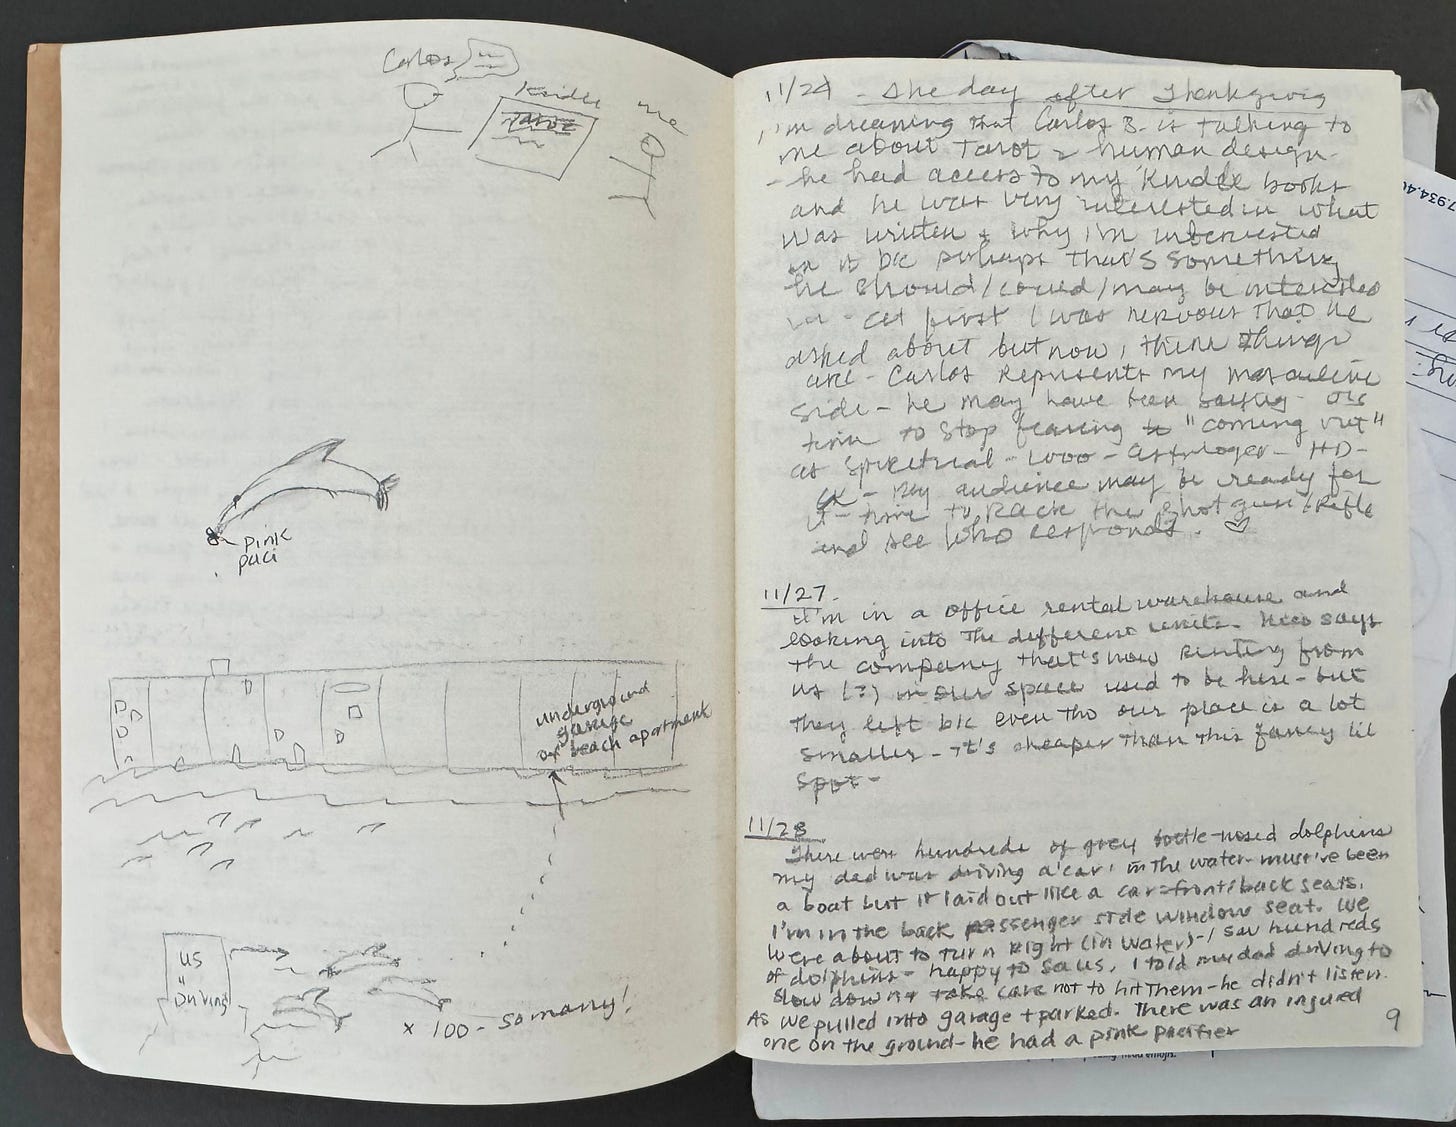 Carlos
Kindle
me
Tarot
pink
paci
underground
garage
our beach apartment
us
Driving
x 100 - so many!
11/24 - The day after Thanksgiving
I'm dreaming that Carlos B. is talking to
me about Tarot & human design -
- he had access to my Kindle books
and he was very interested in what
was written & why I'm interested
in it b/c perhaps that's something
he should/could/may be interested
in - at first I was nervous that he
asked about but now, there things
are - Carlos Represents my masculine
side - he may have been saying - its
time to stop fearing to "coming out"
as spiritual - woo - astrologer - HD -
GK - My audience may be ready for
it - time to Rack the shotgun/Rifle
and see who responds. ♡
11/27.
I'm in a office rental warehouse and
looking into the different units. says
the company that's now renting from
us (?) in our space used to be here - but
they left b/c even tho our place is a lot
smaller - it's cheaper than this fancy lil
spot -
11/28
There were hundreds of grey bottle-nosed dolphins
my dad was driving a 'car' in the water - must've been
a boat but it laid out like a car = front/back seats.
I'm in the back passenger side window seat. We
were about to turn right (in water) - I saw hundreds
of dolphins - happy to see us. I told my dad driving to
slow down & take care not to hit them - he didn't listen.
As we pulled into garage + parked. There was an injured
one on the ground - he had a pink pacifier
9
7.934.4